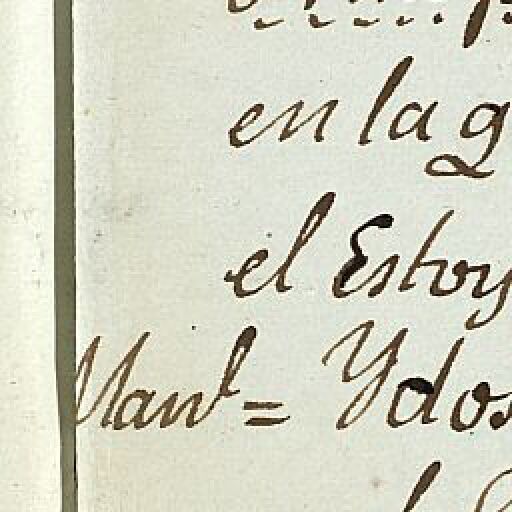 en la q
el Estoy
Man^l = Y dos